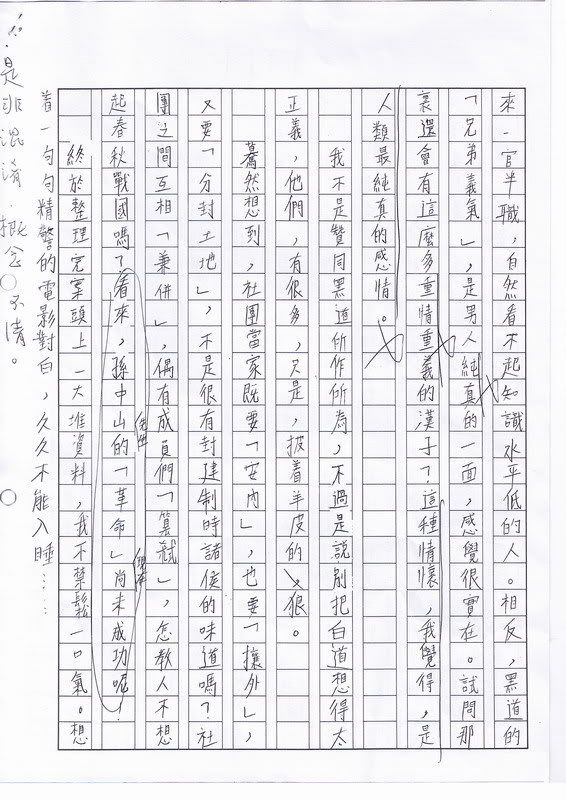 來一官半職，自然看不起知識水平低的人。相反，黑道的
「兄弟義氣」，是男人純真的一面，感覺很實在。試問那
裏還會有這麼多重情重義的漢子？這種情懷，我覺得，是
人類最純真的感情。
我不是贊同黑道所作所為，不過是說別把白道想得太
正義，他們，有很多，只是，披着羊皮的狼。
驀然想到，社團當家既要「安內」，也要「攘外」，
又要「分封土地」，不是很有封建制時諸侯的味道嗎？社
團之間互相「兼併」，偶有成員們「篡弒」，怎教人不想
起春秋戰國嗎？看來，孫中山先生的「革命」尚未成功呢！
終於整理完案頭上一大堆資料，我不禁鬆一口氣。想
着一句句精警的電影對白，久久不能入睡……
是非混淆，概念不清。